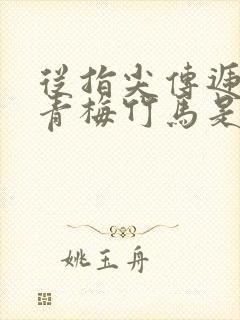 從指尖傳遞
青梅竹馬是
姚玉舟